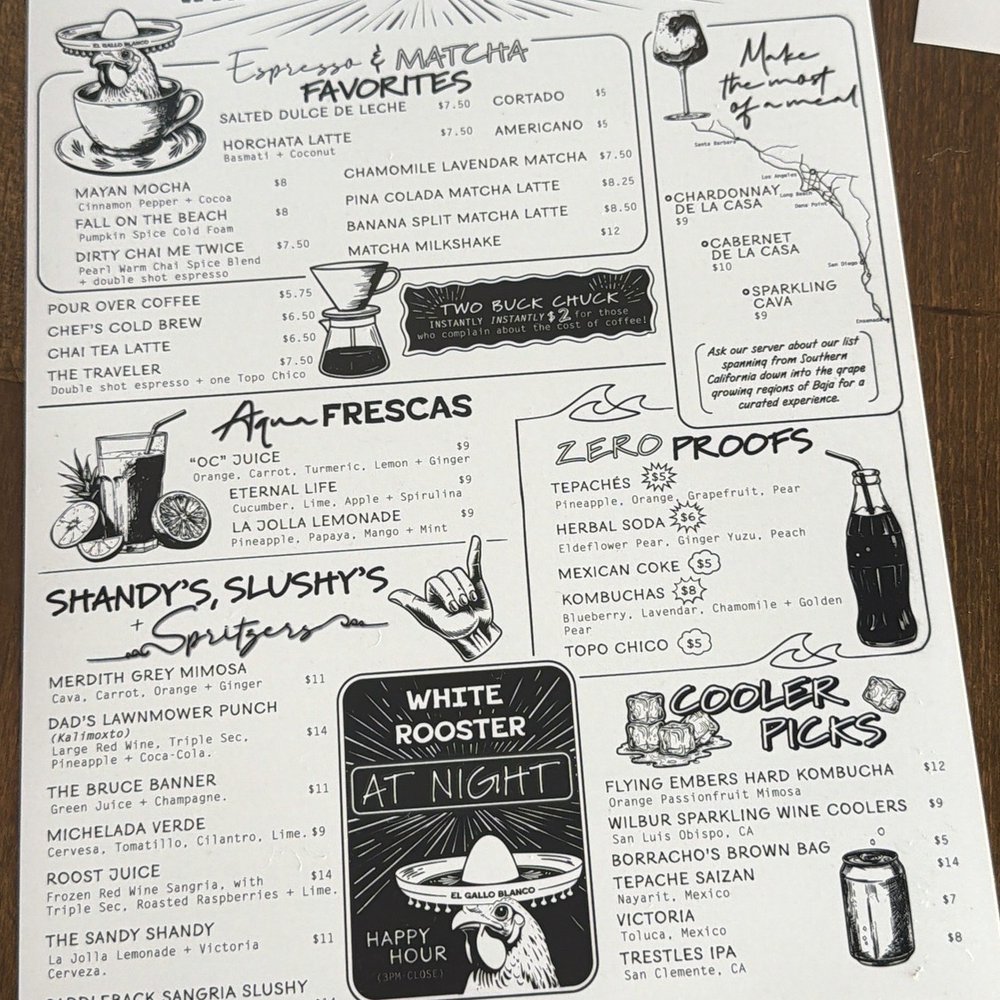 EL GALLO BLANCO
Espresso & MATCHA
FAVORITES
SALTED DULCE DE LECHE $7.50
HORCHATA LATTE $7.50
Basmati + Coconut
MAYAN MOCHA $8
Cinnamon Pepper + Cocoa
FALL ON THE BEACH $8
Pumpkin Spice Cold Foam
DIRTY CHAI ME TWICE $7.50
Pearl Warm Chai Spice Blend
+ double shot espresso
CORTADO $5
AMERICANO $5
CHAMOMILE LAVENDAR MATCHA $7.50
PINA COLADA MATCHA LATTE $8.25
BANANA SPLIT MATCHA LATTE $8.50
MATCHA MILKSHAKE $12
POUR OVER COFFEE $5.75
CHEF'S COLD BREW $6.50
CHAI TEA LATTE $6.50
THE TRAVELER $7.50
Double shot espresso + one Topo Chico
TWO BUCK CHUCK
INSTANTLY INSTANTLY $2 for those
who complain about the cost of coffee!
Make
the most
of a meal
Santa Barbara
Los Angeles
Long Beach
Dana Point
San Diego
Ensenada
CHARDONNAY
DE LA CASA
$9
CABERNET
DE LA CASA
$10
SPARKLING
CAVA
$9
Ask our server about our list
spanning from Southern
California down into the grape
growing regions of Baja for a
curated experience.
Aqua FRESCAS
"OC" JUICE $9
Orange, Carrot, Turmeric, Lemon + Ginger
ETERNAL LIFE $9
Cucumber, Lime, Apple + Spirulina
LA JOLLA LEMONADE $9
Pineapple, Papaya, Mango + Mint
ZERO PROOFS
TEPACHÉS $5
Pineapple, Orange, Grapefruit, Pear
HERBAL SODA $6
Eldeflower Pear, Ginger Yuzu, Peach
MEXICAN COKE $5
KOMBUCHAS $8
Blueberry, Lavendar, Chamomile + Golden
Pear
TOPO CHICO $5
SHANDY'S, SLUSHY'S
+ Spritzers
MERDITH GREY MIMOSA $11
Cava, Carrot, Orange + Ginger
DAD'S LAWNMOWER PUNCH
(Kalimoxto) $14
Large Red Wine, Triple Sec,
Pineapple + Coca-Cola.
THE BRUCE BANNER $11
Green Juice + Champagne.
MICHELADA VERDE
Cervesa, Tomatillo, Cilantro, Lime. $9
ROOST JUICE $14
Frozen Red Wine Sangria, with
Triple Sec, Roasted Raspberries + Lime.
THE SANDY SHANDY $11
La Jolla Lemonade + Victoria
Cerveza.
SADDLEBACK SANGRIA SLUSHY
WHITE
ROOSTER
AT NIGHT
EL GALLO BLANCO
HAPPY
HOUR
(3PM-CLOSE)
COOLER
PICKS
FLYING EMBERS HARD KOMBUCHA $12
Orange Passionfruit Mimosa
WILBUR SPARKLING WINE COOLERS $9
San Luis Obispo, CA
BORRACHO'S BROWN BAG $5
TEPACHE SAIZAN $14
Nayarit, Mexico
VICTORIA $7
Toluca, Mexico
TRESTLES IPA $8
San Clemente, CA